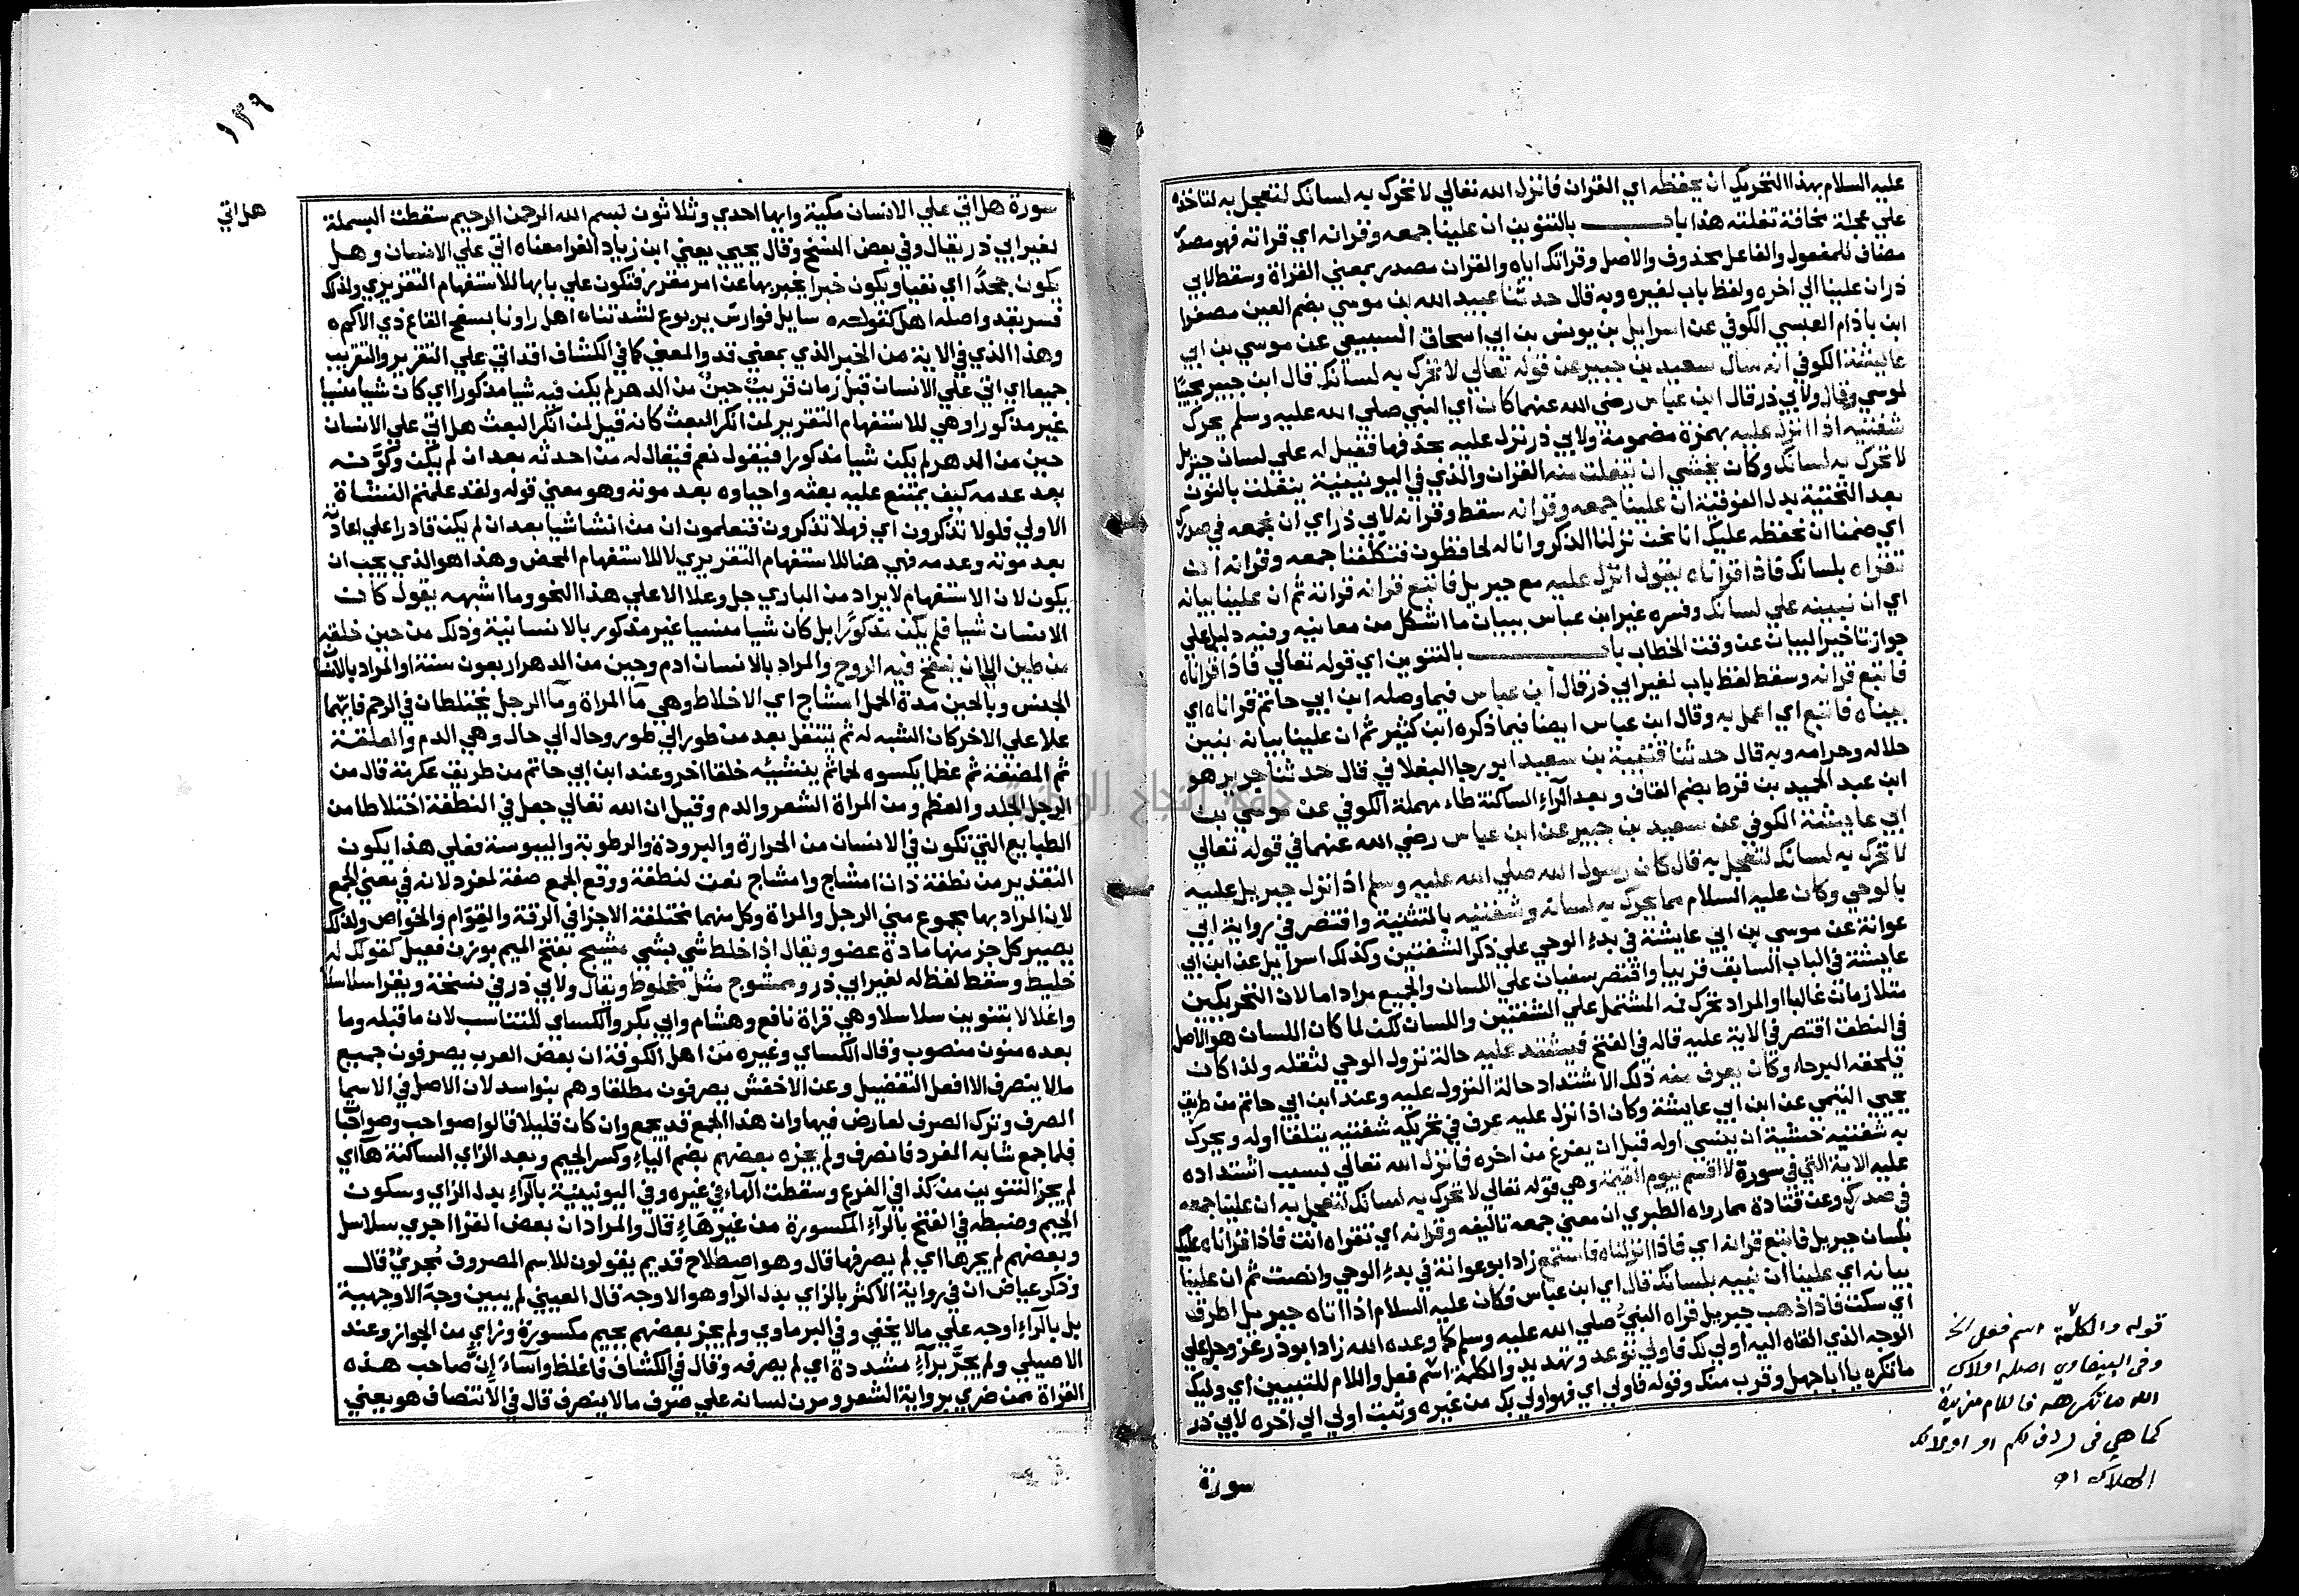 عليه السلام بهذا التحريك ان يحفظه اي القران فانزل الله تعالي لا تحرك به لسانك لتعجل به لتاخذه
علي عجلة مخافة تفلته هذا باب بالتنوين ان علينا جمعه وقرانه اي قراته فهو مصدر
مضاف للمفعول والفاعل محذوف والاصل وقراتك اياه والقران مصدر بمعني القراة وسقط لابي
ذر ان علينا الي اخره ولفظ باب لغيره وبه قال حدثنا عبيد الله بن موسي بضم العين مصغرا
ابن باذام العبسي الكوفي عن اسرايل بن يونس بن ابي اسحاق السبيعي عن موسي بن ابي
عايشة الكوفي انه سال سعيد بن جبير عن قوله تعالي لا تحرك به لسانك قال ابن جبير مجيبا
لموسي وقال ولابي ذر قال ابن عباس رضي الله عنهما كان اي النبي صلي الله عليه وسلم يحرك
شفتيه اذا انزل عليه بهمزة مضمومة ولابي ذر نزل عليه بحذفها فقيل له علي لسان جبريل
لا تحرك به لسانك وكان يخشي ان يتفلت منه القران والذي في اليونينية ينفلت بالنون
بعد التحتية بدل الفوقية ان علينا جمعه وقرانه سقط وقرانه لابي ذر اي ان نجمعه في صدرك
اي ضمنا ان نحفظه عليك انا نحن نزلنا الذكر وانا له لحافظون فتكلفنا جمعه وقرانه ان
تقراه بلسانك فاذا قراناه يقول انزل عليه مع جبريل فاتبع قرانه قراته ثم ان علينا بيانه
اي ان نبينه علي لسانك وفسره غير ابن عباس ببيان ما اشكل من معانيه وفيه دليل علي
جواز تاخير البيان عن وقت الخطاب باب بالتنوين اي قوله تعالي فاذا قراناه
فاتبع قرانه وسقط لفظ باب لغير ابي ذر قال ابن عباس فيما وصله ابن ابي حاتم قراناه اي
بيناه فاتبع اي اعمل به وقال ابن عباس ايضا فيما ذكره ابن كثير ثم ان علينا بيانه نبين
حلاله وحرامه وبه قال حدثنا قتيبة بن سعيد ابو رجا البغلاني قال حدثنا جرير هو
ابن عبد الحميد بن قرط بضم القاف وبعد الرآء الساكنة طاء مهملة الكوفي عن موسي بن
ابي عايشة الكوفي عن سعيد بن جبير عن ابن عباس رضي الله عنهما في قوله تعالي
لا تحرك به لسانك لتعجل به قال كان رسول الله صلي الله عليه وسلم اذا نزل جبريل عليه
بالوحي وكان عليه السلام مما يحرك به لسانه وشفتيه بالتثنية واقتصر في رواية ابي
عوانة عن موسي بن ابي عايشة في بدء الوحي علي ذكر الشفتين وكذلك اسرايل عن ابن ابي
عايشة في الباب السابق قريبا واقتصر سفيان علي اللسان والجميع مراد اما لان التحريكين
متلازمان غالبا او المراد تحرك فمه المشتمل علي الشفتين واللسان لكن لما كان اللسان هو الاصل
في النطق اقتصر في الاية عليه قاله في الفتح فيشتد عليه حالة نزول الوحي لثقله ولذا كان
تلحقه البرحاء وكان يعرف منه ذلك الاشتداد حالة النزول عليه وعند ابن ابي حاتم من طريق
يحيي التيمي عن ابن ابي عايشة وكان اذا نزل عليه عرف في تحريكه شفتيه يتلقا اوله ويحرك
به شفتيه خشية ان ينسي اوله قبل ان يفرغ من اخره فانزل الله تعالي بسبب اشتداده
عليه الاية التي في سورة لا اقسم بيوم القيمة وهي قوله تعالي لا تحرك به لسانك لتعجل به ان علينا جمعه
في صدرك وعن قتادة مما رواه الطبري ان معني جمعه تاليفه وقرانه اي تقراه انت فاذا قراناه عليك
بلسان جبريل فاتبع قرانه اي فاذا انزلناه فاستمع زاد ابو عوانة في بدء الوحي وانصت ثم ان علينا
بيانه اي علينا ان نبينه بلسانك قال اي ابن عباس فكان عليه السلام اذا اتاه جبريل اطرق
اي سكت فاذا ذهب جبريل قراه النبي صلي الله عليه وسلم كما وعده الله زاد ابو ذر عز وجل علي
الوجه الذي القاه اليه اولي لك فاولي توعد وتهديد والكلمة اسم فعل واللام للتبيين اي وليك
ما تكره يا ابا جهل وقرب منك وقوله فاولي اي فهو اولي بك من غيره وثبت اولي الي اخره لابي ذر
سورة
قوله والكلمة اسم فعل الخ
وفي البيضاوي اصله اولاك
الله ما تكرهه فاللام مزيدة
كما هي في ردف لكم او اولاك
الهلاك اه
١٣٩
هل اتي
سورة هل اتي علي الانسان مكية وايها احدي وثلاثون بسم الله الرحمن الرحيم سقطت البسملة
لغير ابي ذر يقال وفي بعض النسخ وقال يحيي يعني ابن زياد الفرا معناه اتي علي الانسان وهل
تكون جحدًا اي نفيا وتكون خبرا يخبر بها عن امر مقرر فتكون علي بابها للاستفهام التقريري ولذلك
فسر بقد واصله اهل كقوله سايل فوارس يربوع لشدتنا ه اهل راونا بسفح القاع ذي الاكم ه
وهذا الذي في الاية من الخبر الذي بمعني قد والمعني كما في الكشاف اقد اتي علي التقرير والتقريب
جميعا اي اتي علي الانسان قبل زمان قريب حين من الدهر لم يكن فيه شيا مذكورا اي كان شيا منسيا
غير مذكور او هي للاستفهام التقرير لمن انكر البعث كانه قيل لمن انكر البعث هل اتي علي الانسان
حين من الدهر لم يكن شيا مذكورا فيقول نعم فيقال له من احدثه بعد ان لم يكن وكوّنه
بعد عدمه كيف يمتنع عليه بعثه واحياوه بعد موته وهو معني قوله ولقد علمتم النشاة
الاولي فلولا تذكرون اي فهلا تذكرون فتعلمون ان من انشا شيا بعد ان لم يكن قادر علي اعادته
بعد موته وعدمه فهي هنا للاستفهام التقريري لا للاستفهام المحض وهذا هو الذي يجب ان
يكون لان الاستفهام لا يراد من الباري جل وعلا الا علي هذا النحو وما اشبهه يقول كان
الانسان شيا فلم يكن مذكورًا بل كان شيا منسيا غير مذكور بالانسانية وذلك من حين خلقه
من طين الي ان ينفخ فيه الروح والمراد بالانسان ادم وحين من الدهر اربعون سنة او المراد بالانسان
الجنس وبالحين مدة الحمل امشاج اي الاخلاط وهي ما المراة وما الرجل يختلطان في الرحم فايهما
علا علي الاخر كان الشبه له ثم ينتقل بعد من طور الي طور وحال الي حال وهي الدم والعلقة
ثم المضغة ثم عظما يكسوه لحما ثم ينشئه خلقا اخر وعند ابن ابي حاتم من طريق عكرمة قال من
الرجل الجلد والعظم ومن المراة الشعر والدم وقيل ان الله تعالي جعل في النطفة اختلاطا من
الطبايع التي تكون في الانسان من الحرارة والبرودة والرطوبة واليبوسة فعلي هذا يكون
التقدير من نطفة ذات امشاج وامشاج نعت لنطفة ووقع الجمع صفة لمفرد لانه في معني الجمع
لان المراد بها مجموع مني الرجل والمراة وكل منهما مختلفة الاجزا في الرقة والقوام والخواص ولذلك
يصير كل جز منها مادة عضو ويقال اذا خلط شي بشي مشيج بفتح الميم بوزن فعيل كقولك له
خليط وسقط لفظ له لغير ابي ذر وممشوج مثل مخلوط ويقال ولابي ذر في نسخة ويقرا سلاسلا
واغلالا بتنوين سلاسلا وهي قراة نافع وهشام وابي بكر والكساي للتناسب لان ما قبله وما
بعده منون منصوب وقال الكساي وغيره من اهل الكوفة ان بعض العرب يصرفون جميع
مالا ينصرف الا افعل التفضيل وعن الاخفش يصرفون مطلقا وهم بنو اسد لان الاصل في الاسما
الصرف وترك الصرف لعارض فيها وان هذا الجمع قد يجمع وان كان قليلا قالوا صواحب وصواحبا
فلما جمع شابه المفرد فانصرف ولم يجزه بعضهم بضم الياء وكسر الجيم وبعد الزاي الساكنة هآ اي
لم يجز التنوين من كذا في الفرع وسقطت الهاء في غيره وفي اليونينية بالرآء بدل الزاي وسكون
الجيم وضبطه في الفتح بالرآء المكسورة من غير هاء قال والمراد ان بعض القرا اجري سلاسل
وبعضهم لم يجرها اي لم يصرفها قال وهو اصطلاح قديم يقولون للاسم المصروف مُجريٌ قال
وذكر عياض ان في رواية الاكثر بالزاي بدل الرآ وهو الاوجه قال العيني لم يبين وجه الاوجهية
بل بالرآء اوجه علي مالا يخفي وفي البرماوي ولم يجز بعضهم بجيم مكسورة وزاي من الجواز وعند
الاصيلي ولم يجرّ برآء مشددة اي لم يصرفه وقال في الكشاف فاغلظ واسآء ان صاحب هذه
القراة ممن ضري برواية الشعر ومرن لسانه علي صرف مالا ينصرف قال في الانتصاف هو يعني
جامعة النجاح الوطنية